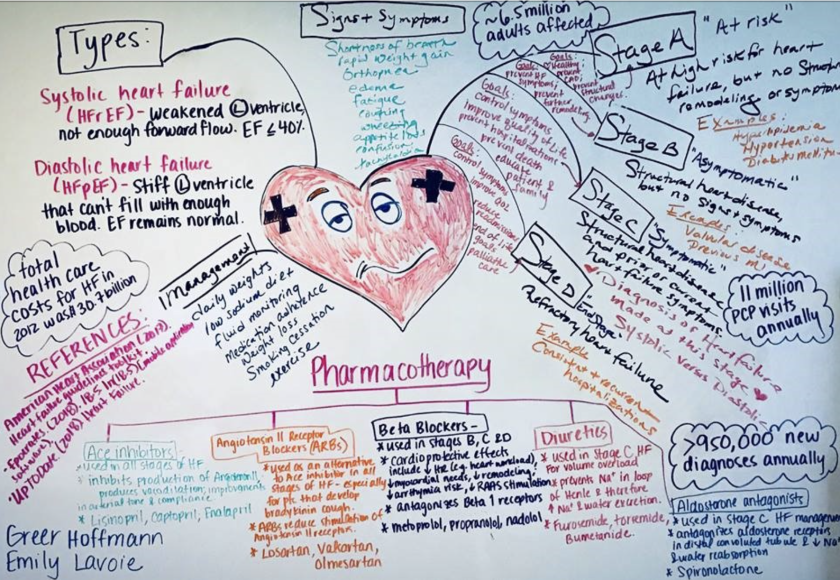 Types:
Systolic heart failure
(HFrEF) - weakened Ⓛ ventricle,
not enough forward flow. EF ≤ 40%.
Diastolic heart failure
(HFpEF) - Stiff Ⓛ ventricle
that can't fill with enough
blood. EF remains normal.
total
health care
costs for HF in
2012 was $30.7 billion
Signs + Symptoms
Shortness of breath
rapid weight gain
Orthopnea
edema
fatigue
coughing
wheezing
appetite loss
confusion
tachycardia
~6.5 million
adults affected
Stage A
"At risk"
At high risk for heart
failure, but no Struct
remodeling or symptom
Examples:
Hyperlipidemia
Hypertension
Diabetes
Goals:
prevent
symptoms,
prevent
further
remodeling
Goals:
Healthy
prevent
CAD,
prevent
structural
changes.
Stage B
"Asymptomatic"
Structural heart disease,
but no signs + symptoms
Examples:
Valvular disease
Previous MI
Goals:
control symptoms
improve quality of life
prevent hospitalizations
prevent death
educate
patient &
family
Stage C
"Symptomatic"
Structural heart disease
and prior or current
heart failure symptoms.
♥ Diagnosis of Heart failure
made at this stage ♥
Systolic versus Diastolic
Goals:
control
symptoms
improve
QOL
reduce
readmissions
end of life
goals
palliative
care
Stage D
"End Stage"
Refractory heart failure
Example
Consistent + recurrent
hospitalizations
11 million
PCP visits
annually
Management
daily weights
low sodium diet
fluid monitoring
Medication adherence
Weight loss
Smoking cessation
exercise
REFERENCES:
American Heart Association (2017).
Heart failure guidelines toolkit
Epocrates. (2018). 18.5 (mobile application
software).
UPTODATE (2018). Heart Failure.
Pharmacotherapy
Ace inhibitors
* used in all stages of HF
* inhibits production of Angiotensin II,
produces vasodilation, improvements
in arterial tone & compliance.
* Lisinopril, Captopril, Enalapril
Angiotensin II Receptor
Blockers (ARBs)
* used as an alternative
to Ace inhibitor in all
stages of HF - especially
for pts that develop
bradykinin cough.
* ARBs reduce stimulation of
Angiotensin II receptors.
* Losartan, Valsartan,
Olmesartan
Beta Blockers -
* used in stages B, C & D
* Cardioprotective effects
include ↓ HR (e.g. heart workload),
↓ myocardial needs, ↓ remodeling,
↓ arrhythmia risk, ↓ RAAS stimulation
* antagonizes Beta 1 receptors
* metoprolol, propranolol, nadolol
Diuretics
* used in Stage C HF
for volume overload
* prevents Na⁺ in loop
of Henle & therefore
↑ Na⁺ & water excretion.
* Furosemide, torsemide,
Bumetanide.
>950,000 new
diagnoses annually
Aldosterone antagonists
* used in stage C HF manageme
* antagonizes aldosterone receptors
in distal convoluted tubule & ↓ Na⁺
& water reabsorption
* Spironolactone
Greer Hoffmann
Emily Lavoie